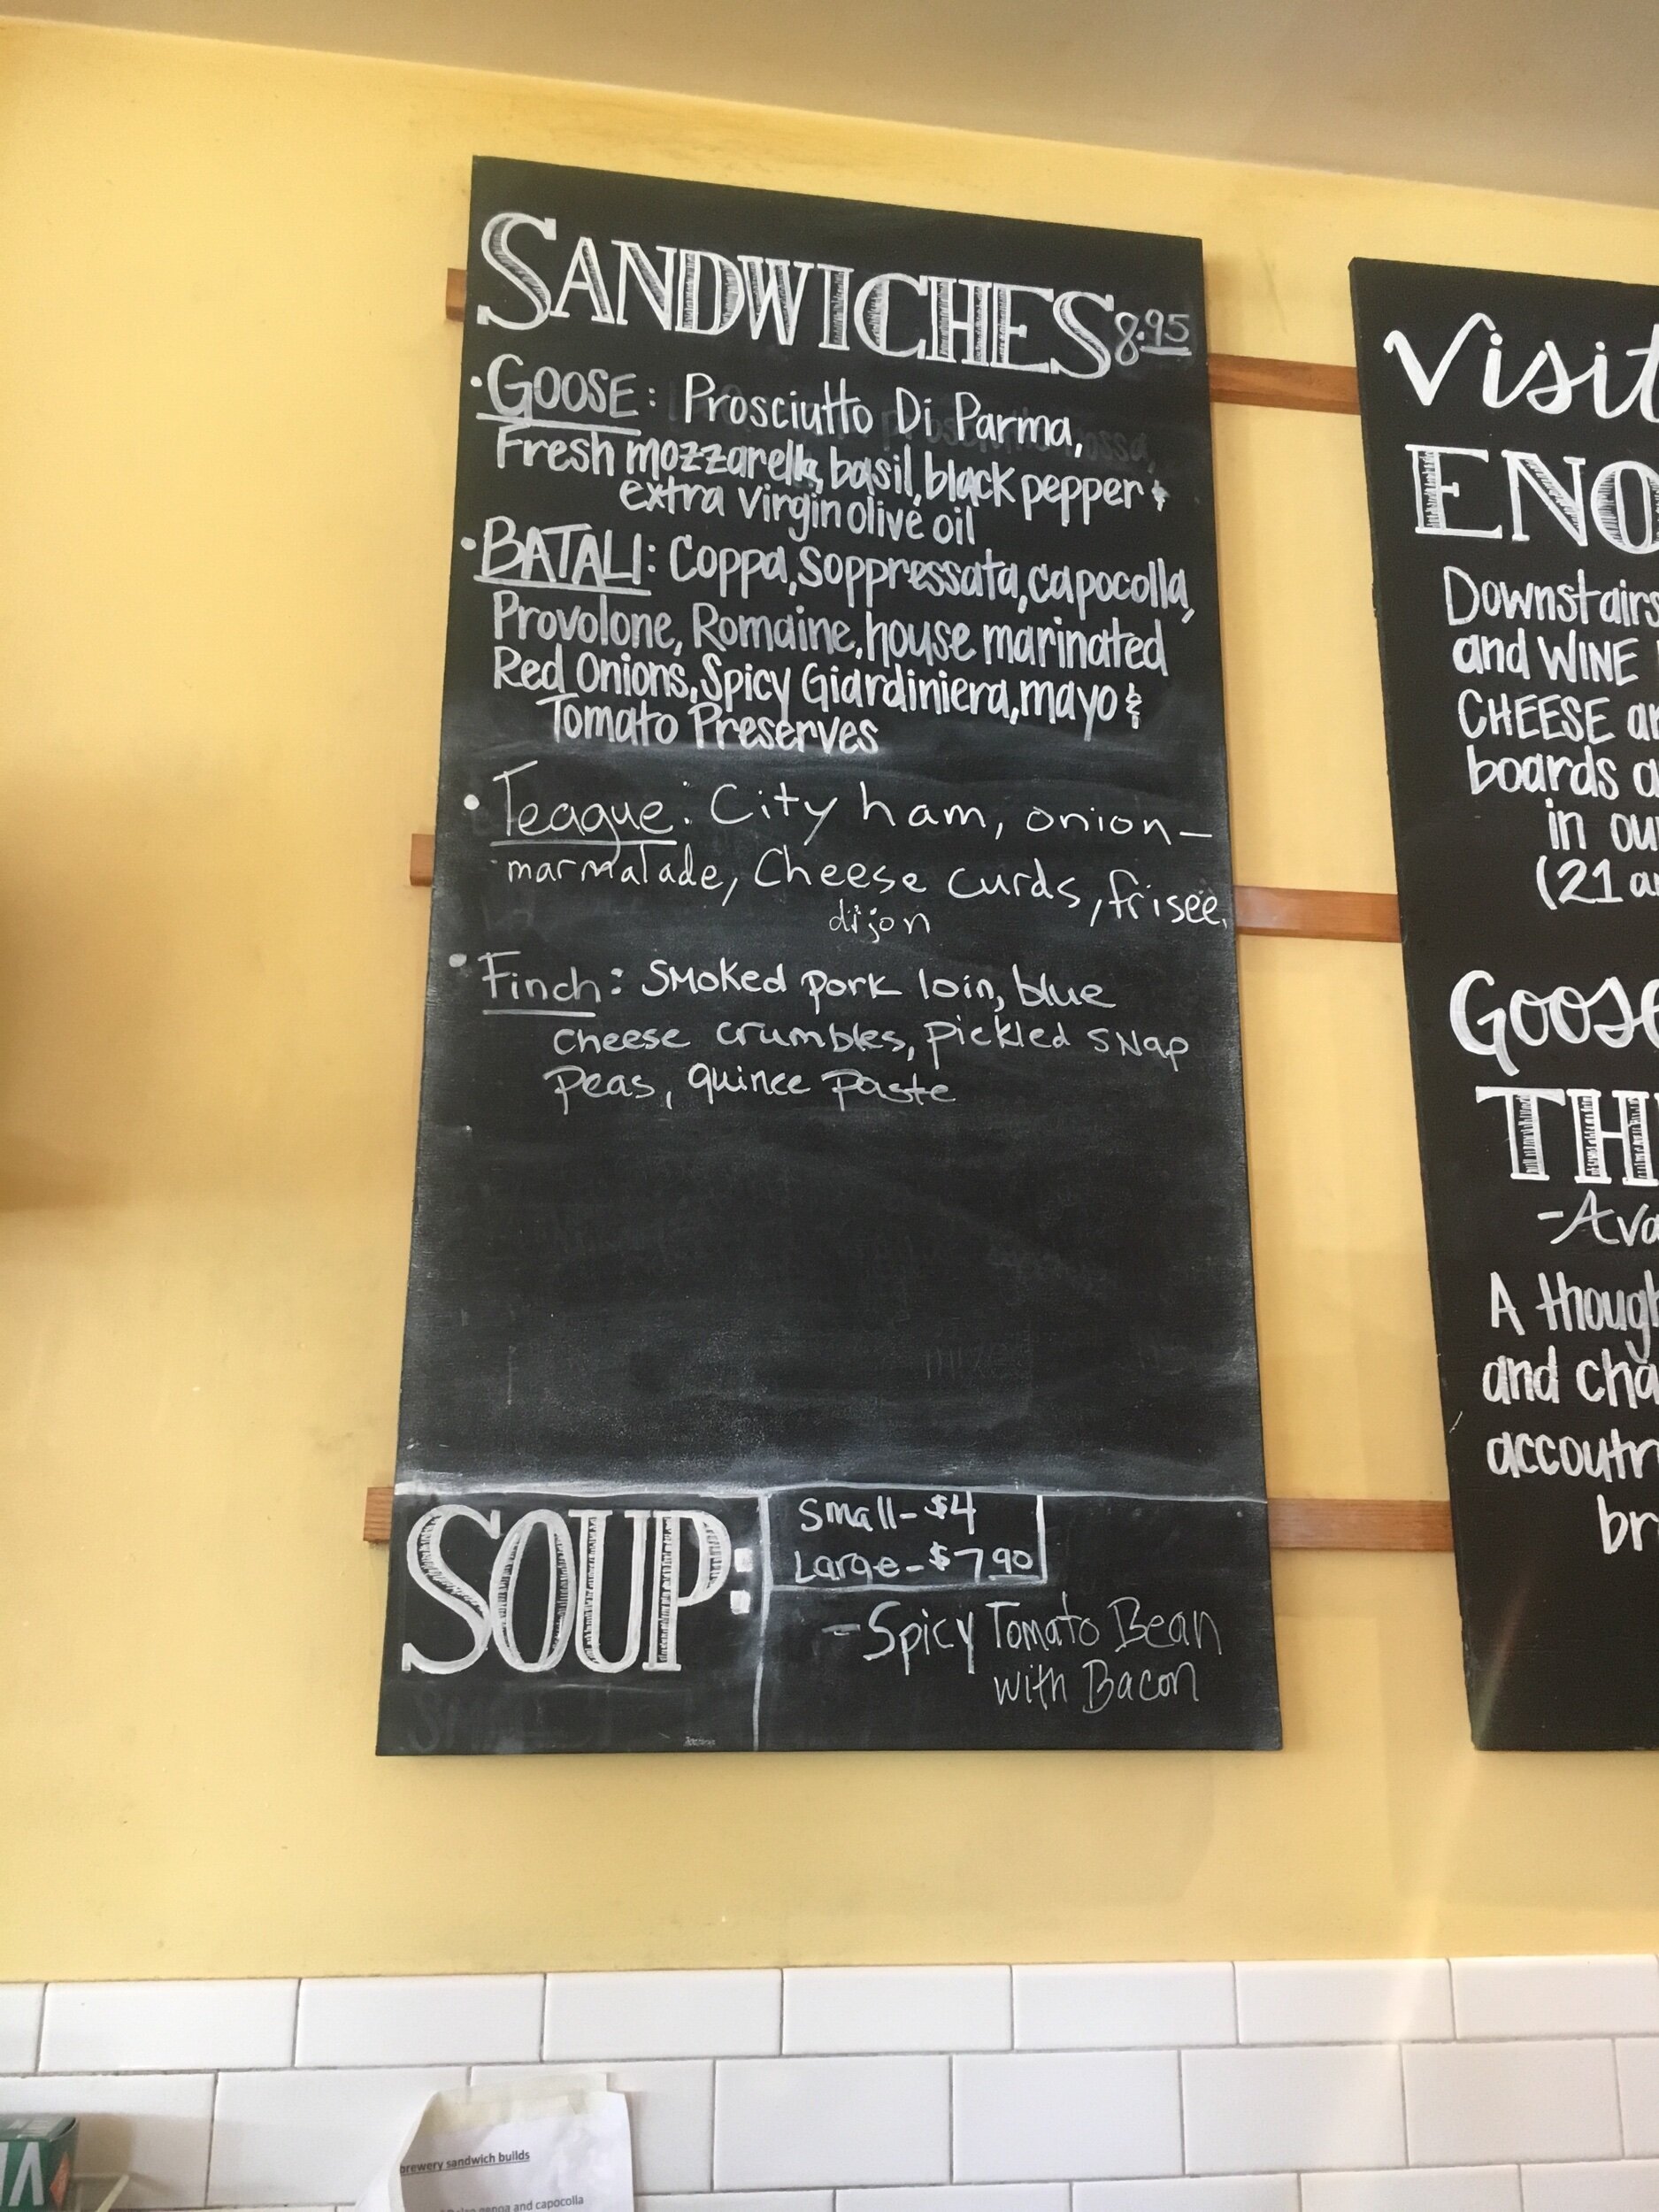 SANDWICHES 8.95
• GOOSE: Prosciutto Di Parma,
Fresh mozzarella, basil, black pepper &
extra virgin olive oil
• BATALI: Coppa, Soppressata, capocolla,
Provolone, Romaine, house marinated
Red Onions, Spicy Giardiniera, mayo &
Tomato Preserves
• Teague: City ham, onion-
marmalade, Cheese curds, frisée,
dijon
• Finch: Smoked pork loin, blue
cheese crumbles, pickled snap
peas, quince paste
SOUP:
Small - $4
Large - $7.90
- Spicy Tomato Bean
with Bacon
Visit
ENO
Downstairs
and WINE
CHEESE
boards
in
(21
GOOSE
-
A
and
brewery sandwich builds
genoa and capocolla